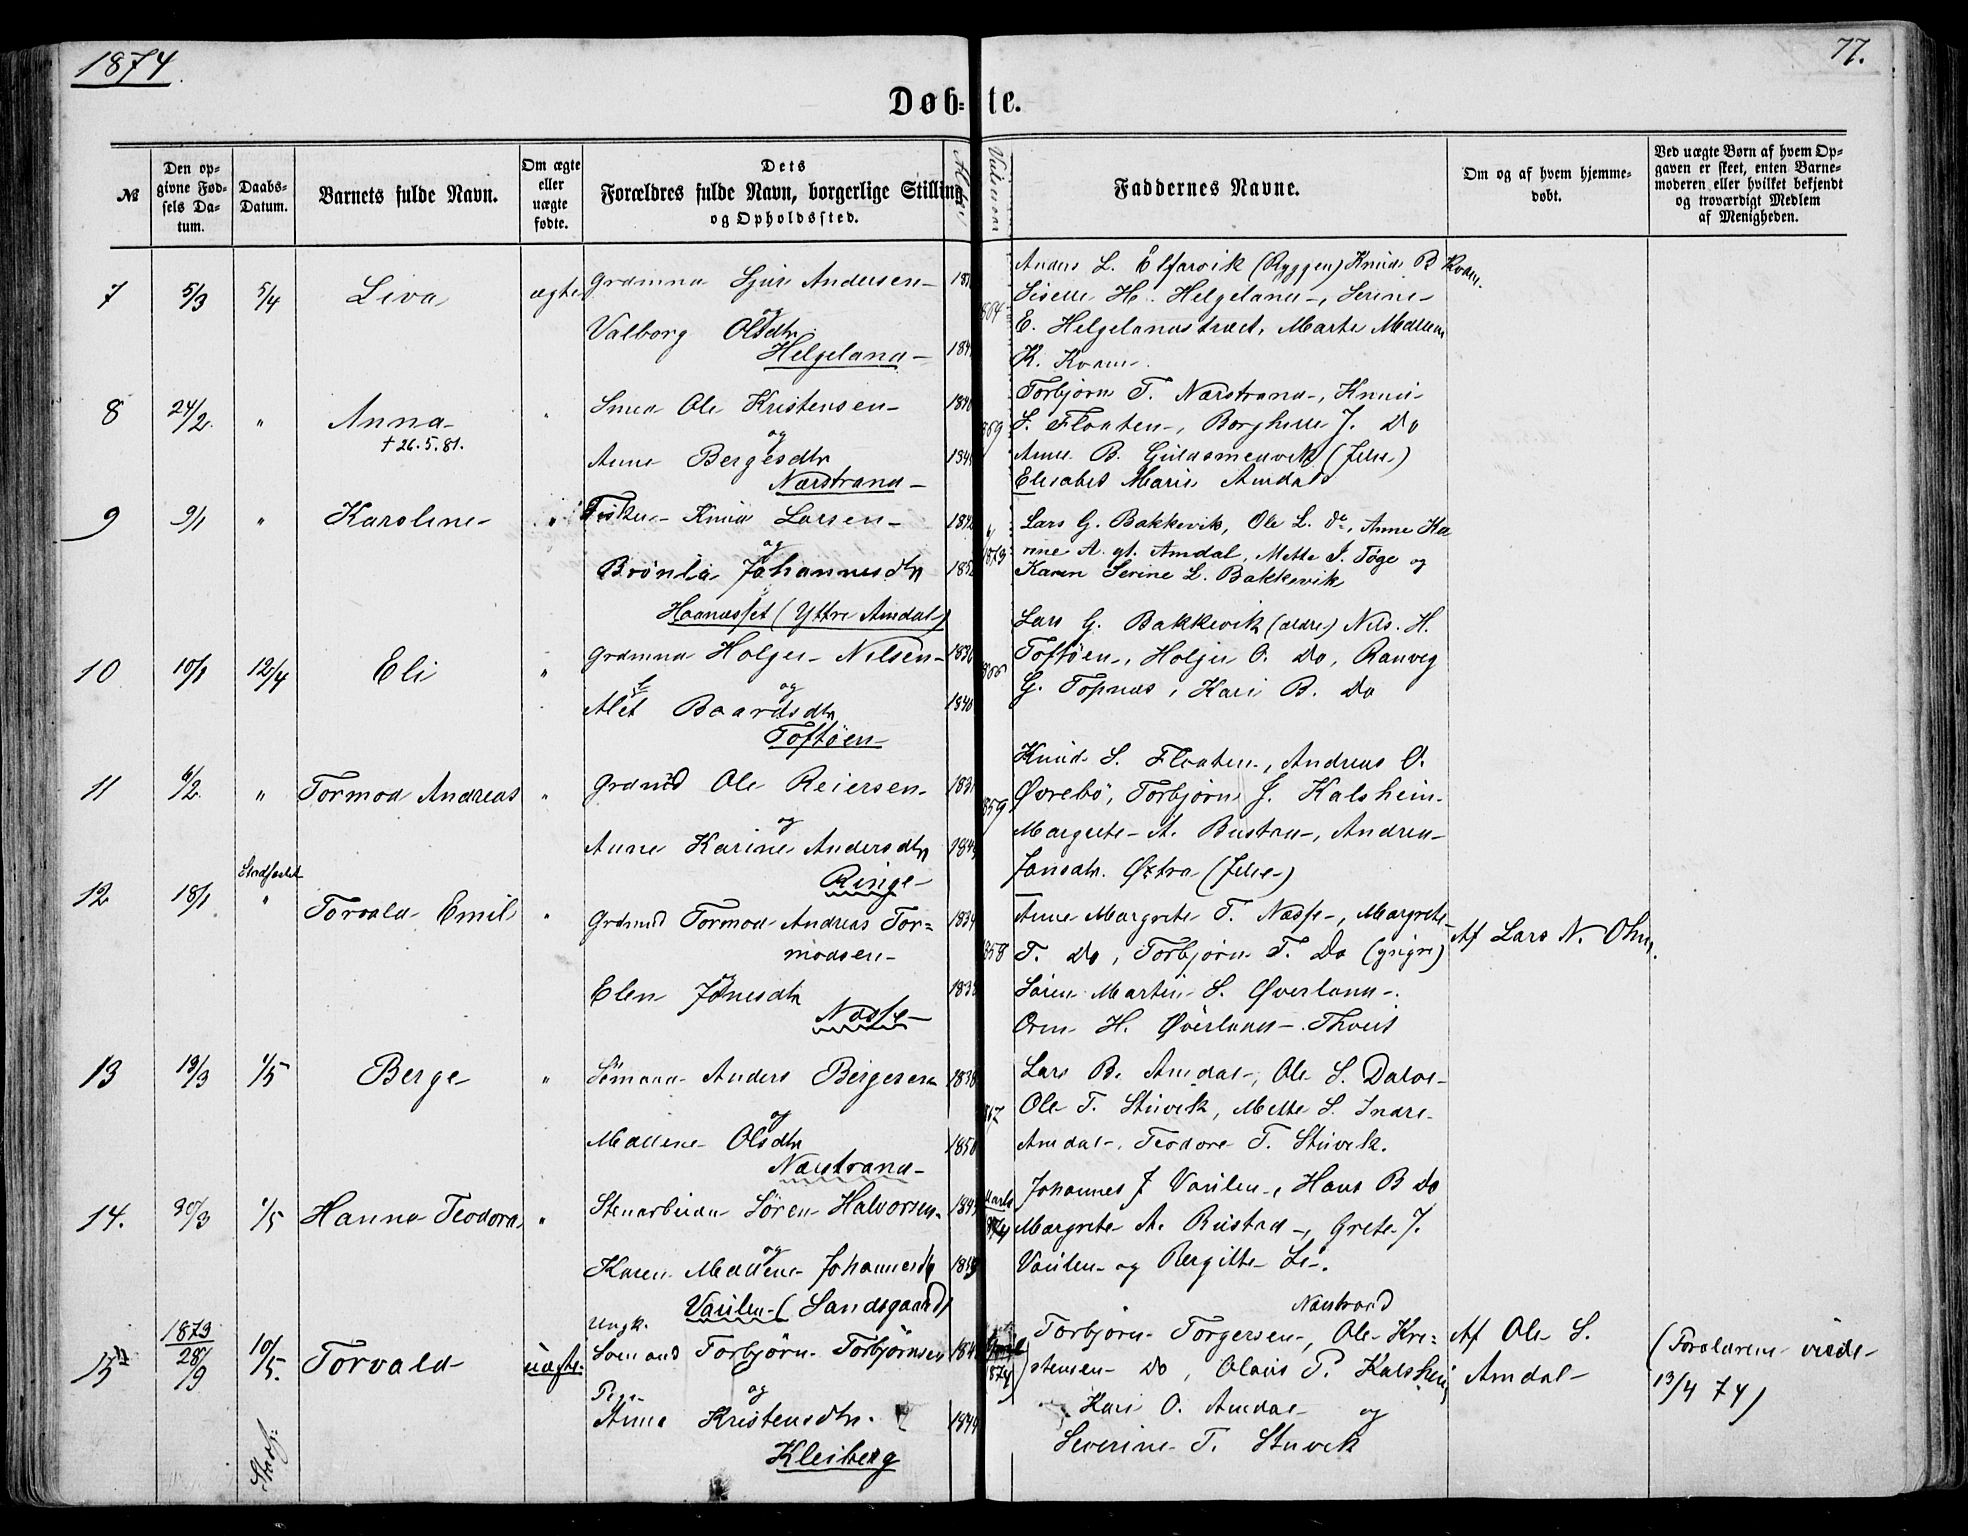 1874
77.
Døbte.
№
Den opgivne Fødsels Datum.
Daabs-Datum.
Barnets fulde Navn.
Om ægte eller uægte fødte.
Dets Forældres fulde Navn, borgerlige Stilling og Opholdssted.
Faddernes Navne.
Om og af hvem hjemmedøbt.
Ved uægte Børn af hvem Opgaven er skeet, enten Barnemoderen eller hvilket bekjendt og troværdigt Medlem af Menigheden.
7 5/3 5/4 Liva ægte
Grdmnd Sjur Andersen
og
Valborg Olsdtr
Helgeland
Anders L. Elfarvik (Ryggen) Knud B Kvam.
Siselle H. Helgeland, Serine
E. Helgelandstræet, Marte Mallene
K. Kvam.
8 24/2 " Anna "
† 26.5.81.
Smed Ole Kristensen
og
Anne Bergesdtr
Nærstrand
Torbjørn T. Nærstrand, Knud
S. Floaten, Borghille J. Do
Anne B. Guldsmedvik (Jelse)
Elisabet Marie Amdal
9 9/1 " Karoline "
Fisker Knud Larsen 1842
og
Brønla Johannesdtr
Haanæsset (Yttre Amdal)
1873
Lars G. Bakkevik, Ole L. do, Anne Ka
rine A. gt. Amdal, Mette I. Tøge og
Karen Serine L. Bakkevik
10 10/1 12/4 Eli "
Grdmnd Holger Nilsen 1830
og
Alet Baardsdtr 1840
Toftøen
Lars G. Bakkevik (ældre) Nils H.
Toftøen, Holger O. Do, Ranveg
G. Topnæs, Kari B. Do
11 6/2 " Tormod Andreas "
Grdmnd Ole Reiersen
og
Anne Karine Andersdtr
Ringe
859
Knud S. Floaten, Andreas O.
Øvrebø, Torbjørn J. Kalsheim
Margrete A. Bustad, Andrea
Jonsdtr. Østra (Jelse)
12 18/1 " Torvald Emil "
Grdmnd Tormod Andreas Tor= 1834
modsen
og
Elen Jonesdtr
Næsse
858
Anne Margrete T. Næsse, Margrete
T. Do, Torbjørn T. Do (yngre)
Søren Martin S. Øverland
Orm H. Øverland Thveit
Af Lars N. Ohm.
13 19/3 1/5 Berge "
Sømand Anders Bergesen 1838
og
Mallene Olsdtr 1850
Nærstrand
Lars B. Amdal, Ole S. Dalva
Ole T. Stuvik, Mette S. Indre
Amdal, Teodore T. Stuvik.
14. 30/3 1/5 Hanna Teodora "
Stenarbeider Søren Halvorsen
og
Karen Mallene Johannesdtr
Vaulen (Sandsgaard)
Marts
1874
Johannes J Vaulen, Hans B Do
Margrete A. Rustad, Grete J.
Vaulen og Bergitte
15 1873 28/9 10/5. Torvald uægte
Ungk.
Sømand Torbjørn Torbjørnsen
og
Pige
Anne Kristensdtr.
Kleiberg
April
1874
Nærstrand
Torbjørn Torgersen, Ole Kri=
stensen Do, Olaus P. Kalsheim
Kari O. Amdal og
Severine T. Stuvik
Af Ole S.
Amdal
(Forældrene viede
13/4 74)